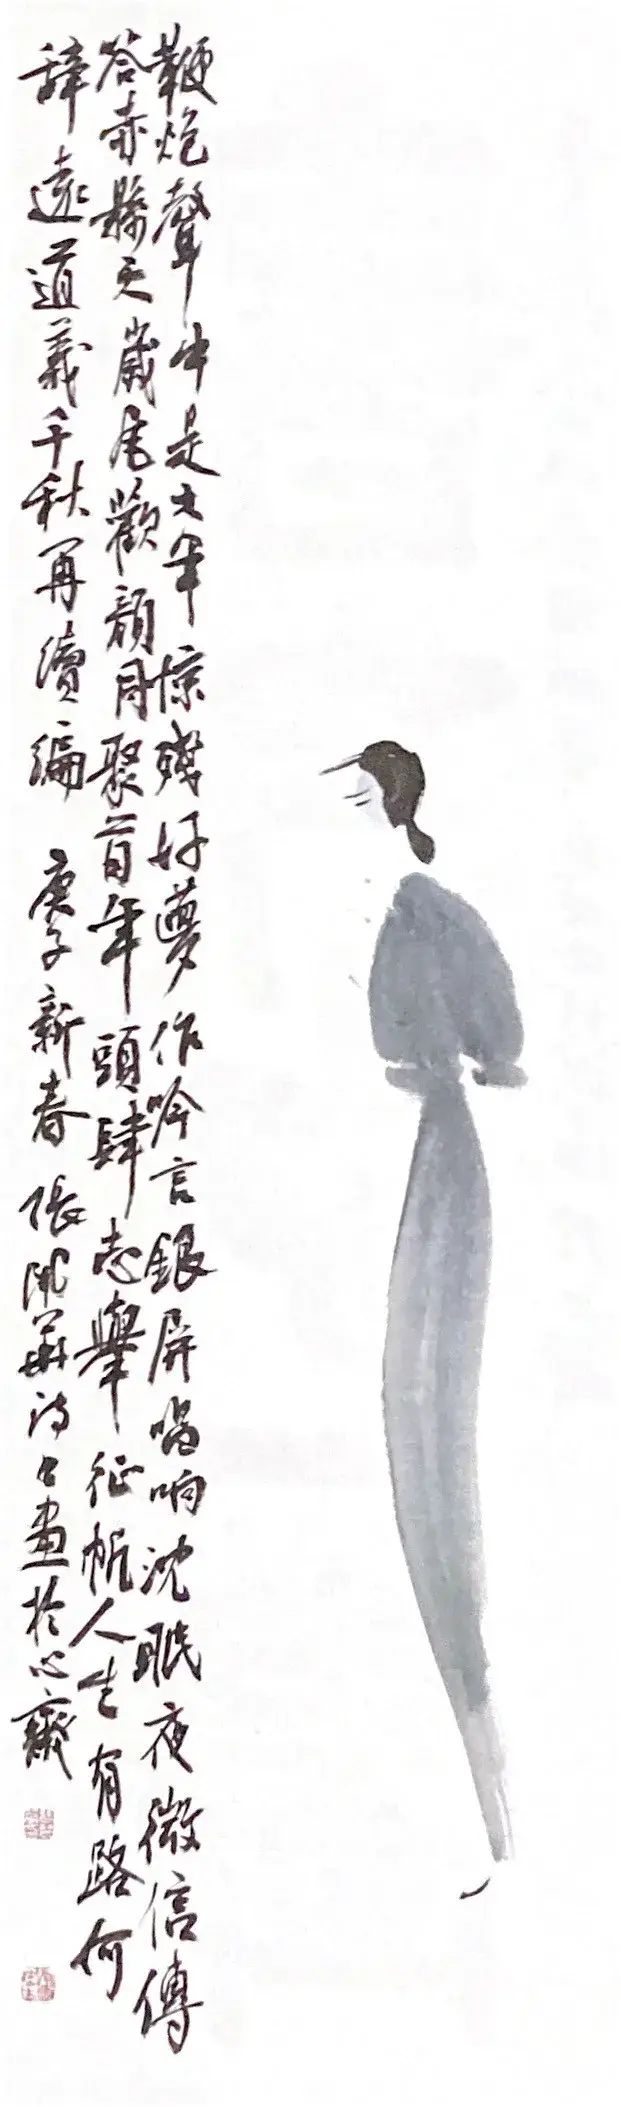 鞭炮聲中是大年惊殘好夢作吟言銀屏唱响沈眠夜微信傳
答赤縣天歲尾歡顏同聚首年頭肆志舉征帆人生有路何
辞遠道義千秋再續編 庚子新春 張華诗書畫於心齋